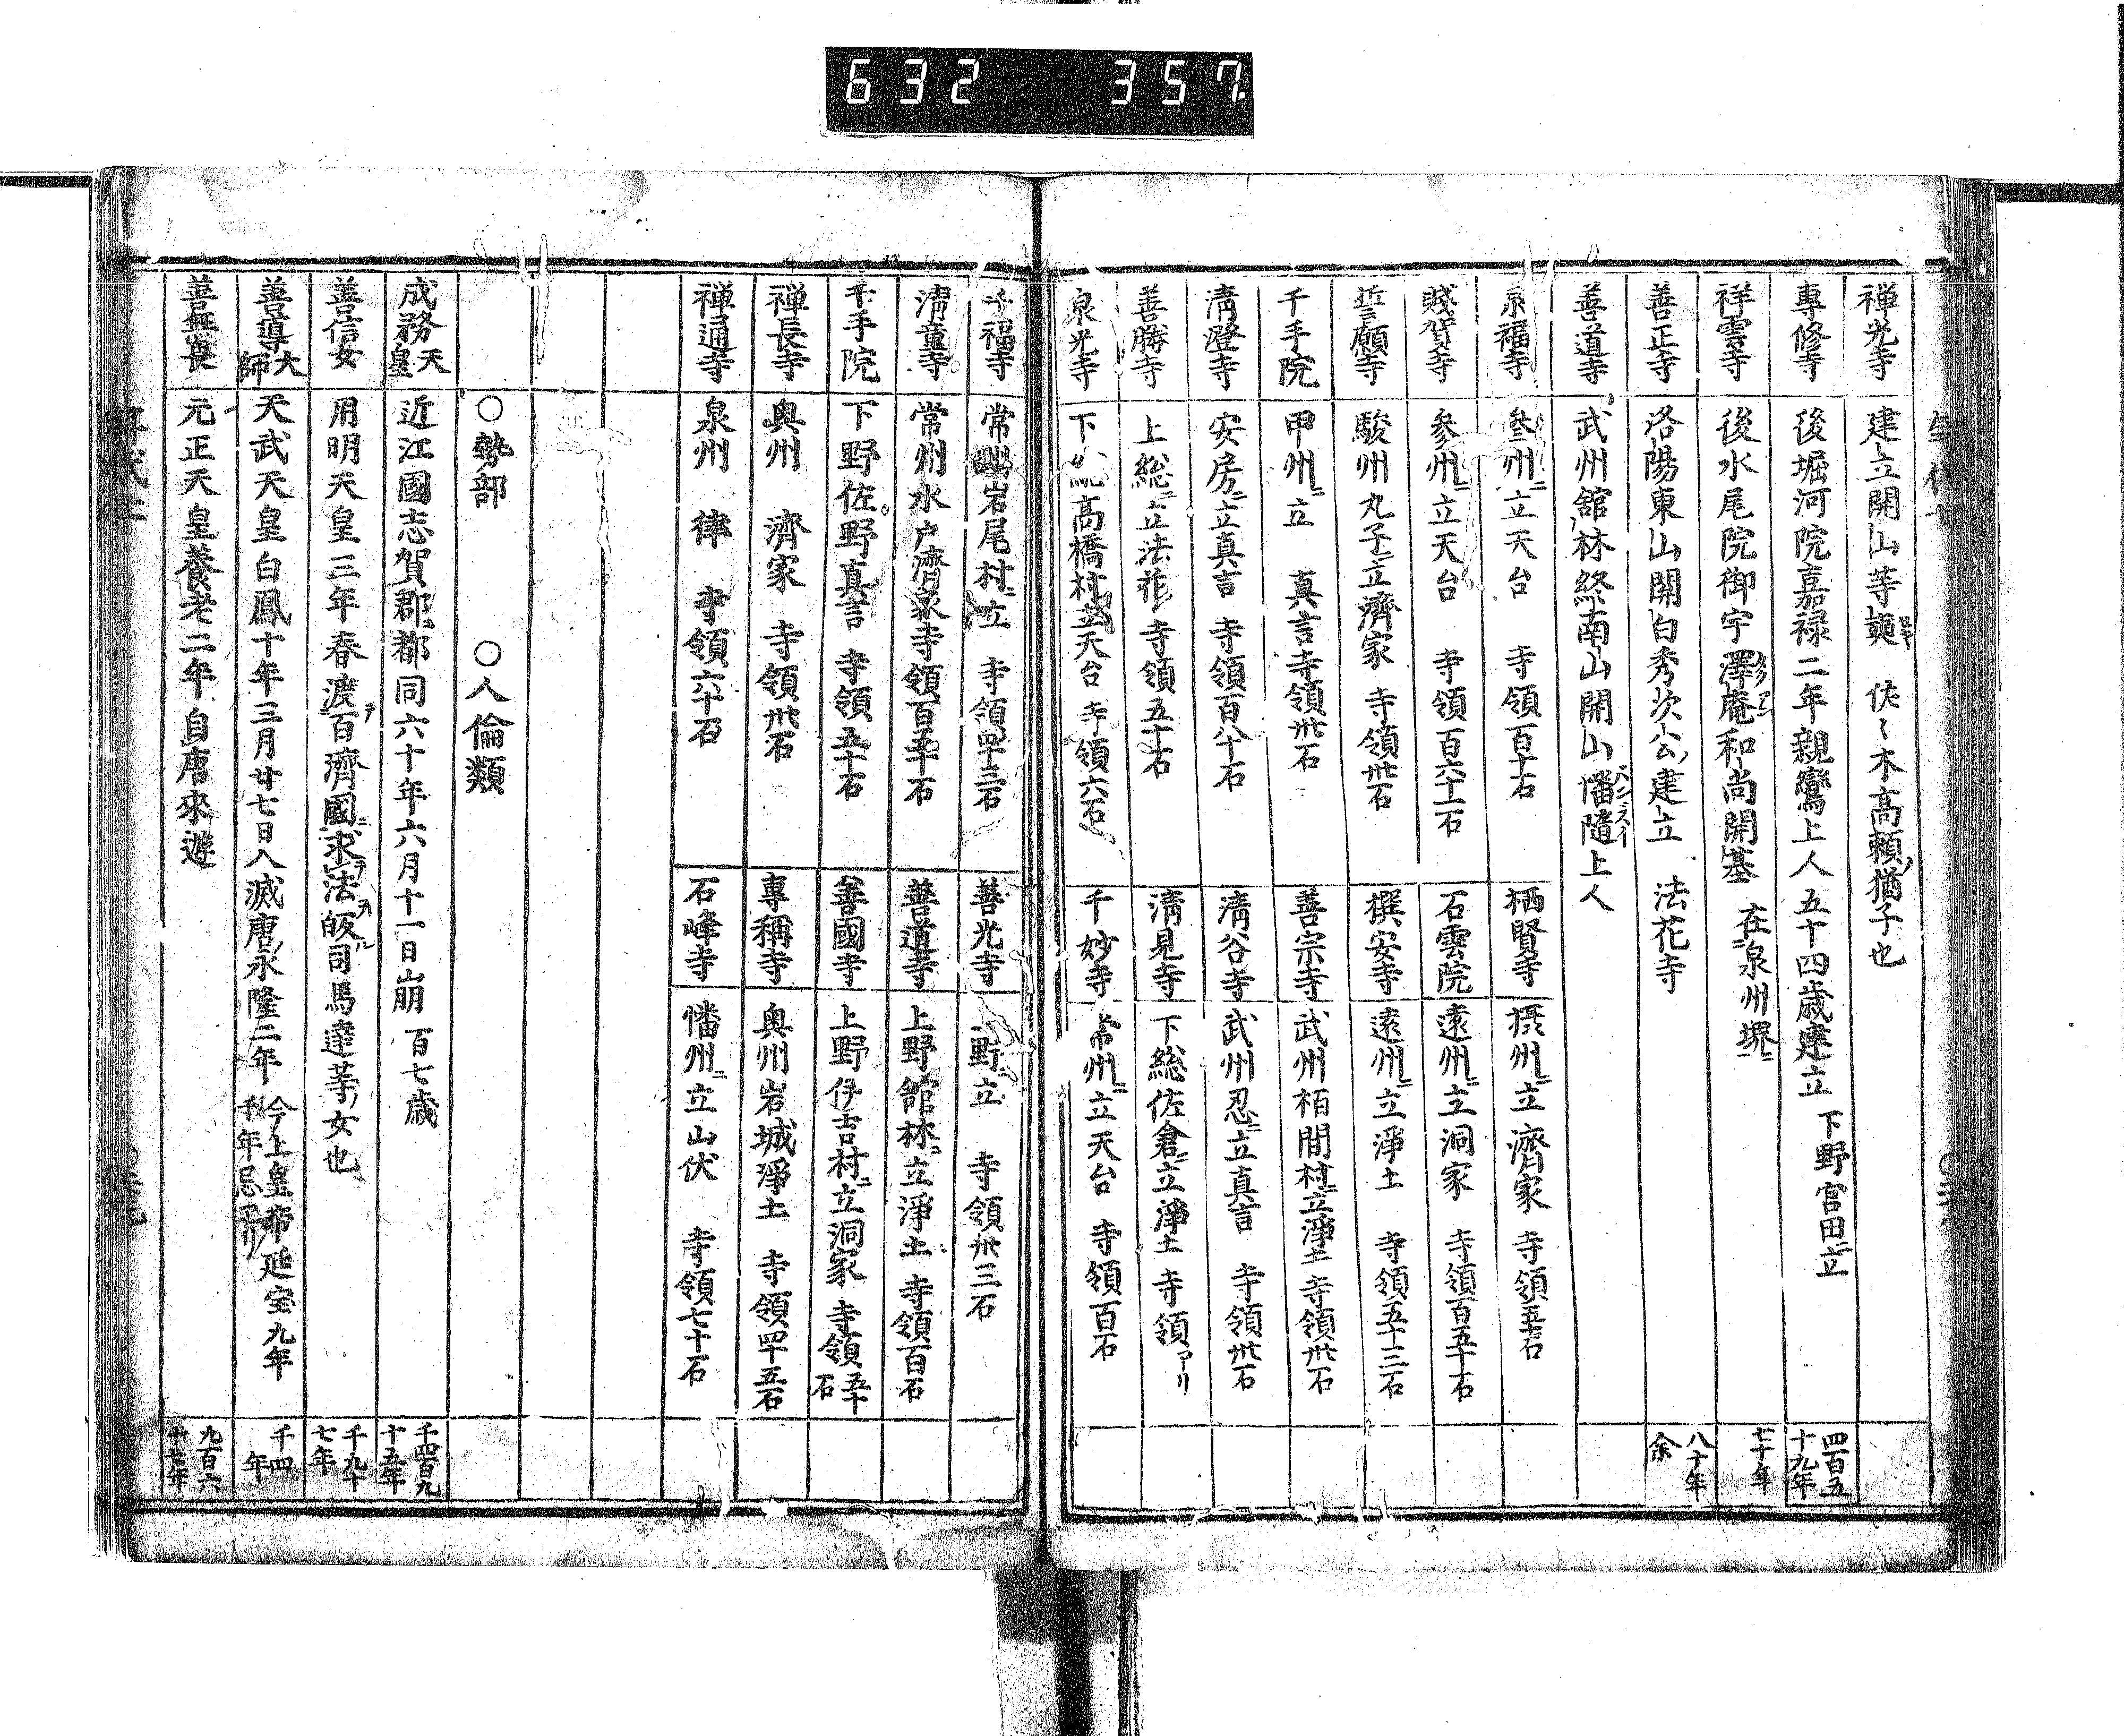 632 357.
禅光寺 建立開山等 佚〻木高頼ノ猶子也
專修寺 後堀河院嘉禄二年親鸞上人五十四歳建立 下野宮田ニ立 四百五十九年
祥雲寺 後水尾院御宇澤庵和尚開基 在泉州堺ニ 七十年
善正寺 洛陽東山開白秀次公建立 法花寺 八十年余
善道寺 武州舘林終南山開山幡隨上人
泉福寺 參州ニ立天台 寺領百十石 栖賢寺 摂州ニ立濟家 寺領五十石
賤賀寺 參州ニ立天台 寺領百六十一石 石雲院 遠州ニ立洞家 寺領百五十石
誓願寺 駿州丸子ニ立濟家 寺領卅石 撰安寺 遠州ニ立淨土 寺領五十三石
千手院 甲州ニ立 真言寺領卅石 善宗寺 武州栢間村ニ立淨土 寺領卅石
清澄寺 安房ニ立真言 寺領百八十石 清谷寺 武州忍ニ立真言 寺領卅石
善勝寺 上総ニ立法花 寺領五十石 清見寺 下総佐倉ニ立淨土 寺領アリ
泉光寺 下総高橋村立天台 寺領六石 千妙寺 常州ニ立天台 寺領百石
千福寺 常州岩尾村ニ立 寺領四十三石 善光寺 上野ニ立 寺領卅三石
清童寺 常州水戸濟家寺領百五十石 善道寺 上野舘林ニ立淨土 寺領百石
千手院 下野佐野真言 寺領五十石 善國寺 上野伊古村ニ立洞家 寺領五十石
禅長寺 奥州 濟家 寺領卅石 專稱寺 奥州岩城淨土 寺領四十五石
禅通寺 泉州 律 寺領六十石 石峰寺 幡州ニ立山伏 寺領七十石
○勢部 ○人倫類
成務天皇 近江國志賀郡ニ都同六十年六月十一日崩 百七歳 千四百九十五年
善信女 用明天皇三年春渡テ百濟國ニ求法ヲ皈ル司馬達等ノ女也 千九十七年
善導大師 天武天皇白鳳十年三月廿七日入滅唐ノ永隆二年 今上皇帝延宝九年千年忌ニ当リ 千四年
善無畏 元正天皇養老二年自唐來遊 九百六十七年